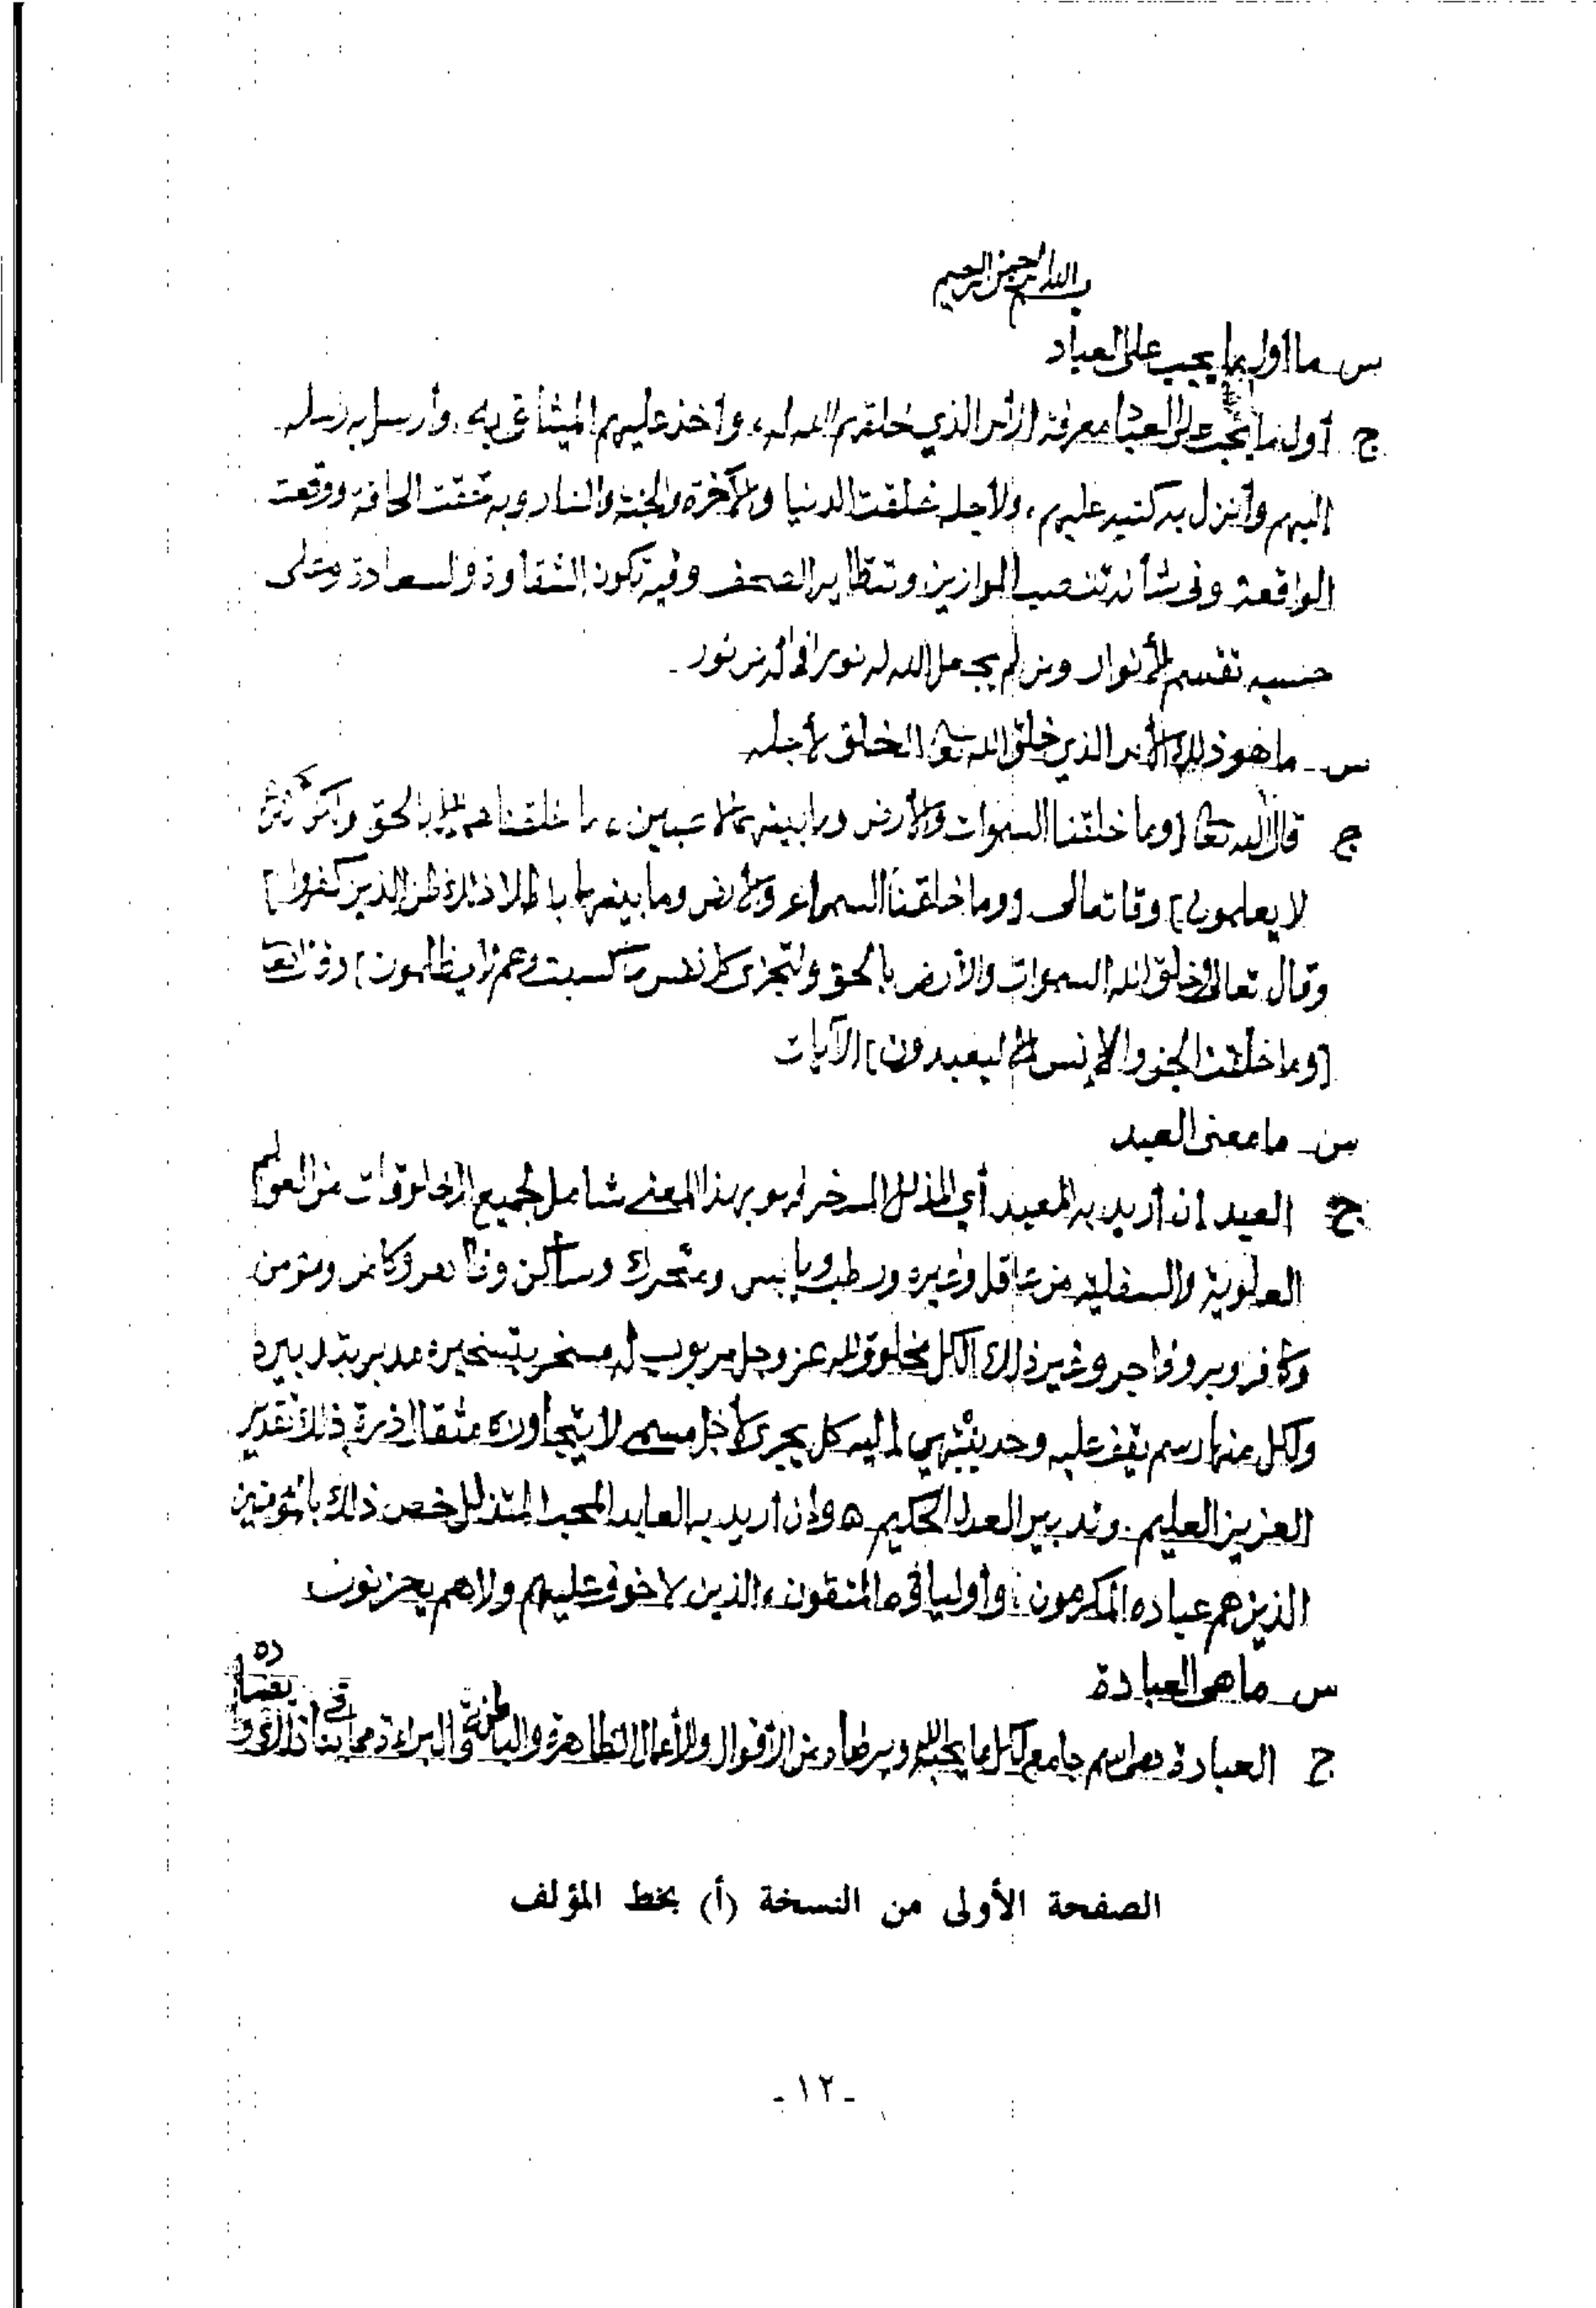 بسم الله الرحمن الرحيم
س ما أول ما يجب على العباد
ج أول ما يجب على العباد معرفة الأمر الذي خلقهم الله له، وأخذ عليهم الميثاق به وأرسل به رسله
اليهم وأنزل به كتبه عليهم، ولأجله خلقت الدنيا والآخرة والجنة والنار وبه حقت الحاقة ووقعت
الواقعة وفى شأنه تنصب الموازين وتتطاير الصحف وفيه تكون الشقاوة والسعادة وعلى
حسبه تقسم الأنوار ومن لم يجعل الله له نورا فما له من نور
س ما هو ذلك الأمر الذي خلق الله تعا الخلق لأجله
ج قال الله تعا [وما خلقنا السموات والأرض وما بينهما لاعبين، ما خلقناهما إلا بالحق ولكن أكثرهم
لا يعلمون] وقا تعالى [وما خلقنا السماء والأرض وما بينهما باطلا ذلك ظن الذين كفروا]
وقال تعالى [وخلق الله السموات والأرض بالحق ولتجزى كل نفس بما كسبت وهم لا يظلمون] وقال تعا
[وما خلقت الجن والإنس إلا ليعبدون] الآيات
س ما معنى العبد
ج العبد إن أريد به المعبد أي المذلل المسخر فهو بهذا المعنى شامل لجميع المخلوقات من العوالم
العلوية والسفلية من عاقل وغيره ورطب ويابس ومتحرك وساكن وظاهر وكامن ومؤمن
وكافر وبر وفاجر وغير ذلك الكل مخلوق لله عز وجل مربوب له مسخر بتسخيره مدبر بتدبيره
ولكل منها رسم يقف عليه وحد ينتهي إليه كل يجرى لأجل مسمى لا يتجاوزه مثقال ذرة ذلك تقدير
العزيز العليم. وتدبير العدل الحكيم ه وإن أريد به العابد المحب المتذلل خص ذلك بالمؤمنين
الذين هم عباده المكرمون وأولياؤه المتقون، الذين لا خوف عليهم ولا هم يحزنون
س ما هى العبادة
ج العبادة هى اسم جامع لكل ما يحبه الله ويرضاه من الأقوال والأعمال الظاهرة والباطنة والبراءة مما ينافى ذلك ويضاده
الصفحة الأولى من النسخة (أ) بخط المؤلف
- ١٢ -